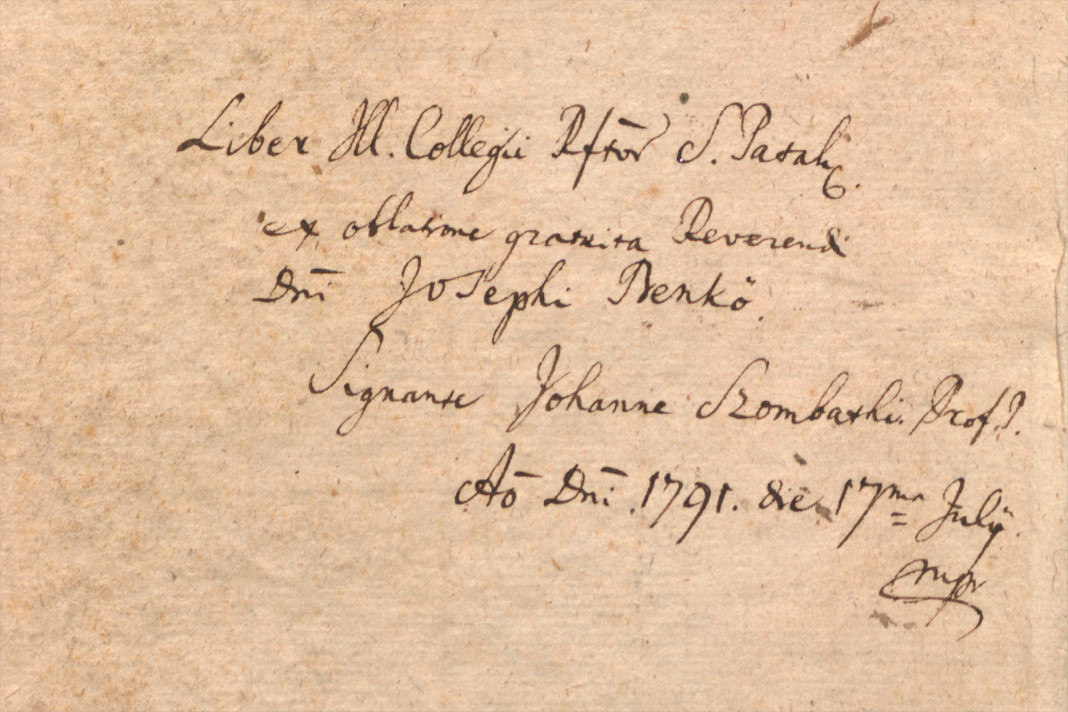 Liber Ill. Collegii Rftōr S. Patak.
ex oblatione gratuita Reverendi
Dn̄i Josephi Benkö.
Signante Johanne Szombathi. Prof. P.
Aō Dn̄i. 1791. die 17ma Julÿ.
mpr